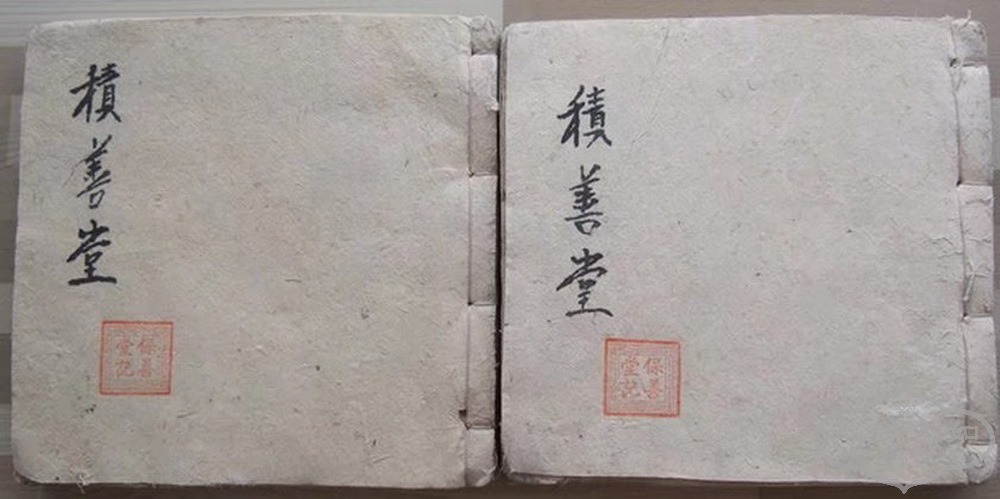 積善堂
保善
堂記
積善堂
保善
堂記